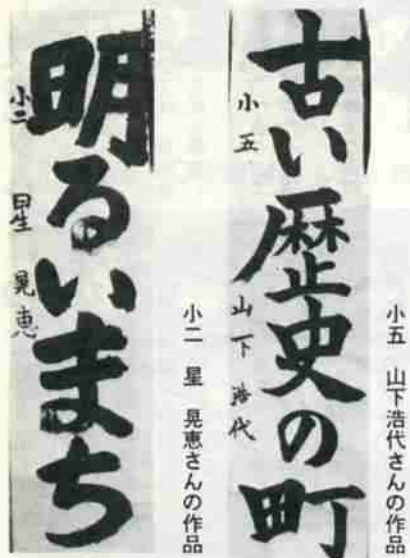 小五 山下浩代さんの作品
古い歴史の町
小五 山下浩代
小二 星 晃恵さんの作品
明るいまち
小二 星 晃恵